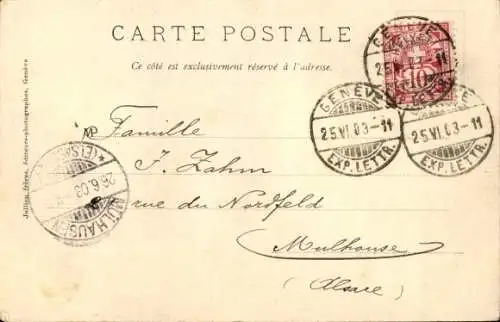 CARTE POSTALE
Ce côté est exclusivement réservé à l'adresse.
Jullien frères, éditeurs-photographes, Genève
GENÈVE
25 VI 03-11
10
GENÈVE
25 VI 03-11
EXP. LETTR.
GENÈVE
25 VI 03-11
EXP. LETTR.
Famille
J. Zahm
rue du Nordfeld
Mulhouse
(Alsace)
MÜLHAUSEN
26.6.03
(ELSASS)